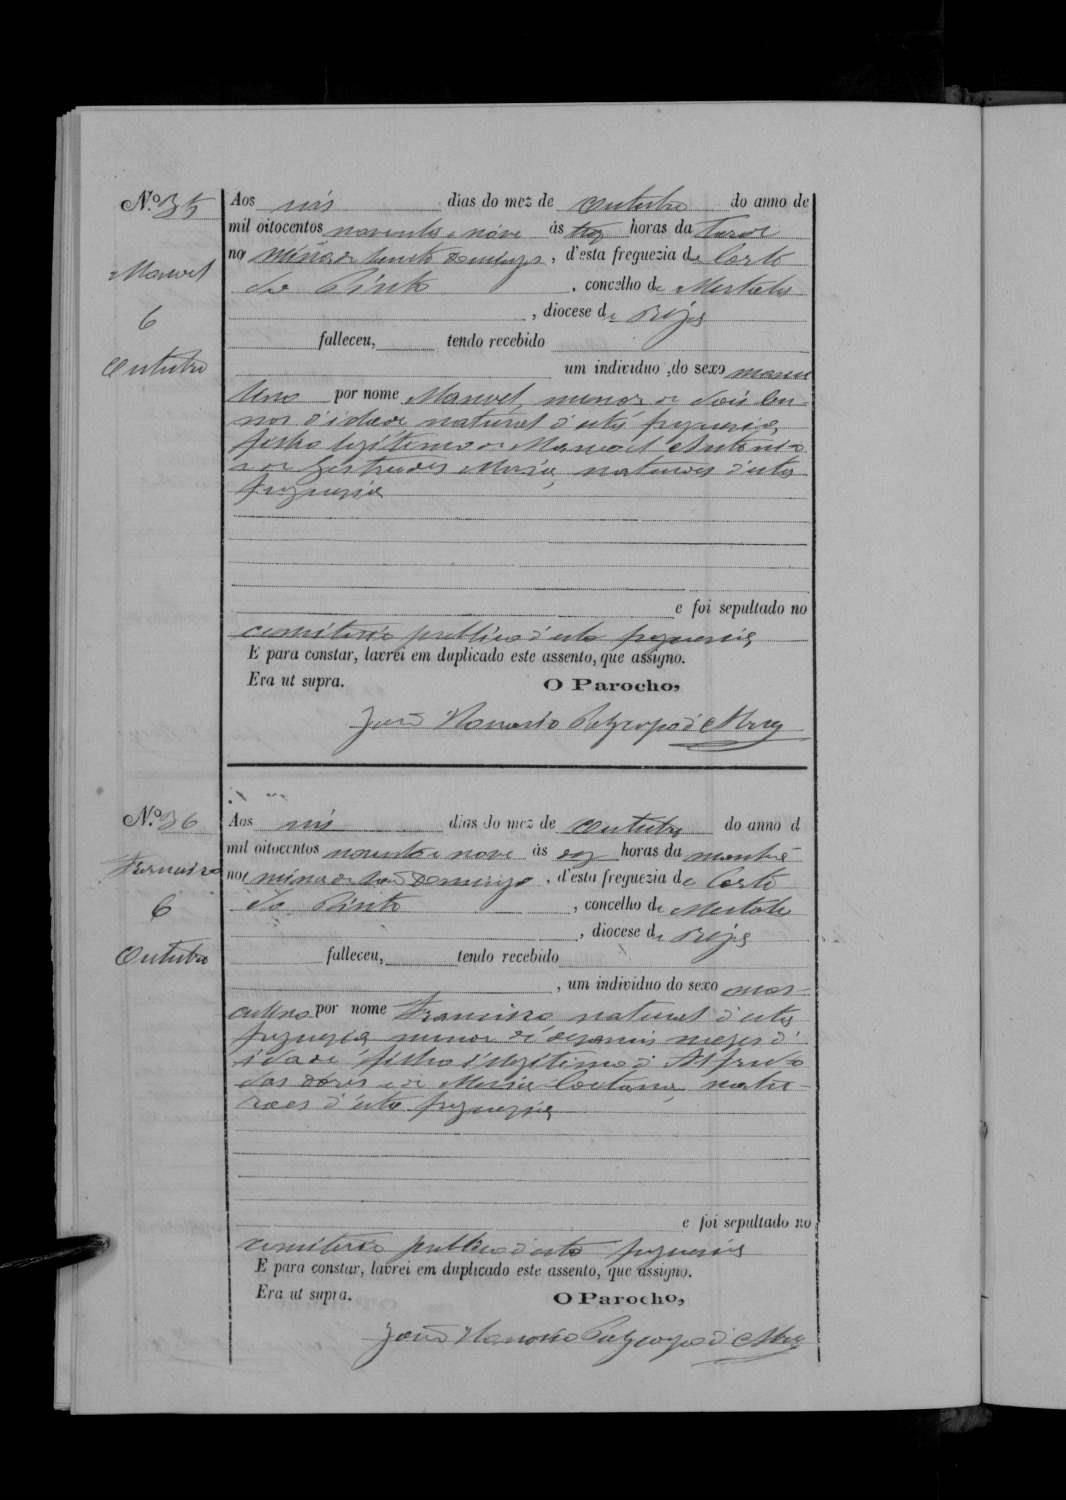 N.º 35
Manoel
6
Outubro
Aos seis dias do mez de Outubro do anno de
mil oitocentos noventa e nove ás trez horas da tarde
na Mina de Domingos, d'esta freguezia de Corte
do Pinto, concelho de Mertola
, diocese de Beja
falleceu, tendo recebido
um individuo do sexo mascu
lino por nome Manoel, menor de dois an-
nos d'idade natural d'esta freguesia,
filho legitimo de Manoel Antonio
e de Gertrudes Maria, naturaes d'esta
freguesia
e foi sepultado no
cemiterio publico d'esta freguesia
E para constar, lavrei em duplicado este assento, que assigno.
Era ut supra. O Parocho,
João
N.º 36
Francisco
6
Outubro
Aos seis dias do mez de Outubro do anno d
mil oitocentos noventa e nove ás dez horas da manhã
na mina de São Domingos, d'esta freguezia de Corte
do Pinto, concelho de Mertola
, diocese de Beja
falleceu, tendo recebido
, um individuo do sexo mas-
culino por nome Francisco natural d'esta
freguesia menor de mezes d'
idade filho illegitimo d' Alfredo
das Dores e de Maria Caetana, natu-
raes d'esta freguesia
e foi sepultado no
cemiterio publico d'esta freguesia
E para constar, lavrei em duplicado este assento, que assigno.
Era ut supra. O Parocho,
João